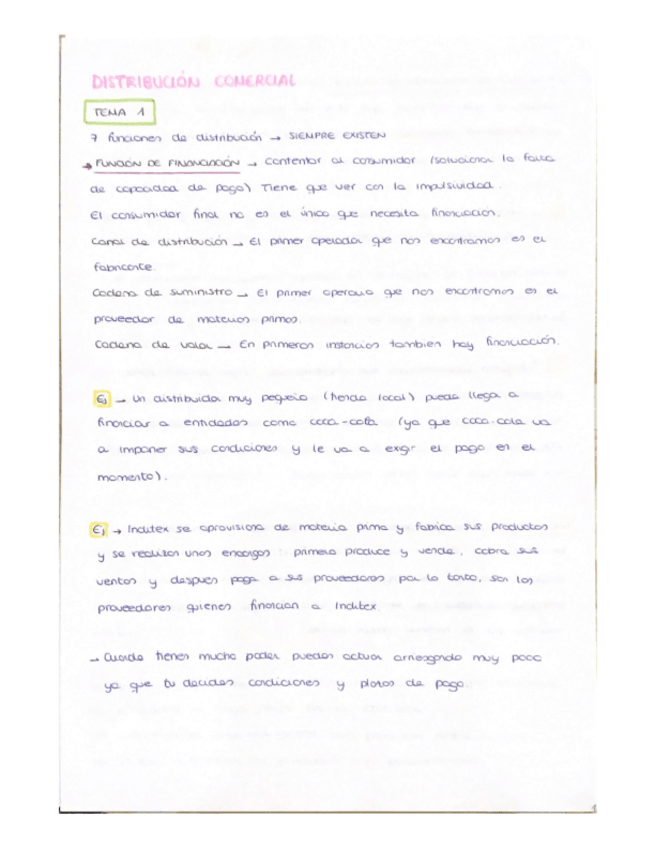 DISTRIBUCIÓN COMERCIAL
TEMA 1
7 funciones de distribución → SIEMPRE EXISTEN
→ FUNCIÓN DE FINANCIACIÓN → Contentar al consumidor (solucionar la falta
de capacidad de pago) Tiene que ver con la impulsividad.
El consumidor final no es el único que necesita financiación.
Canal de distribución → El primer operador que nos encontramos es el
fabricante.
Cadena de suministro → El primer operario que nos encontramos es el
proveedor de materias primas.
Cadena de valor → En primeras instancias tambien hay financiación.
Ej → Un distribuidor muy pequeño (tienda local) puede llega a
financiar a entidades como coca-cola (ya que coca-cola va
a imponer sus condiciones y le va a exigir el pago en el
momento).
Ej → Inditex se aprovisiona de materia prima y fabrica sus productos
y se realizan unos encargos: primero produce y vende, cobra sus
ventas y despues paga a sus proveedores por lo tanto, son los
proveedores quienes financian a Inditex.
→ Cuando tienes mucho poder puedes actuar arriesgando muy poco
ya que tu decides condiciones y plazos de pago.
1